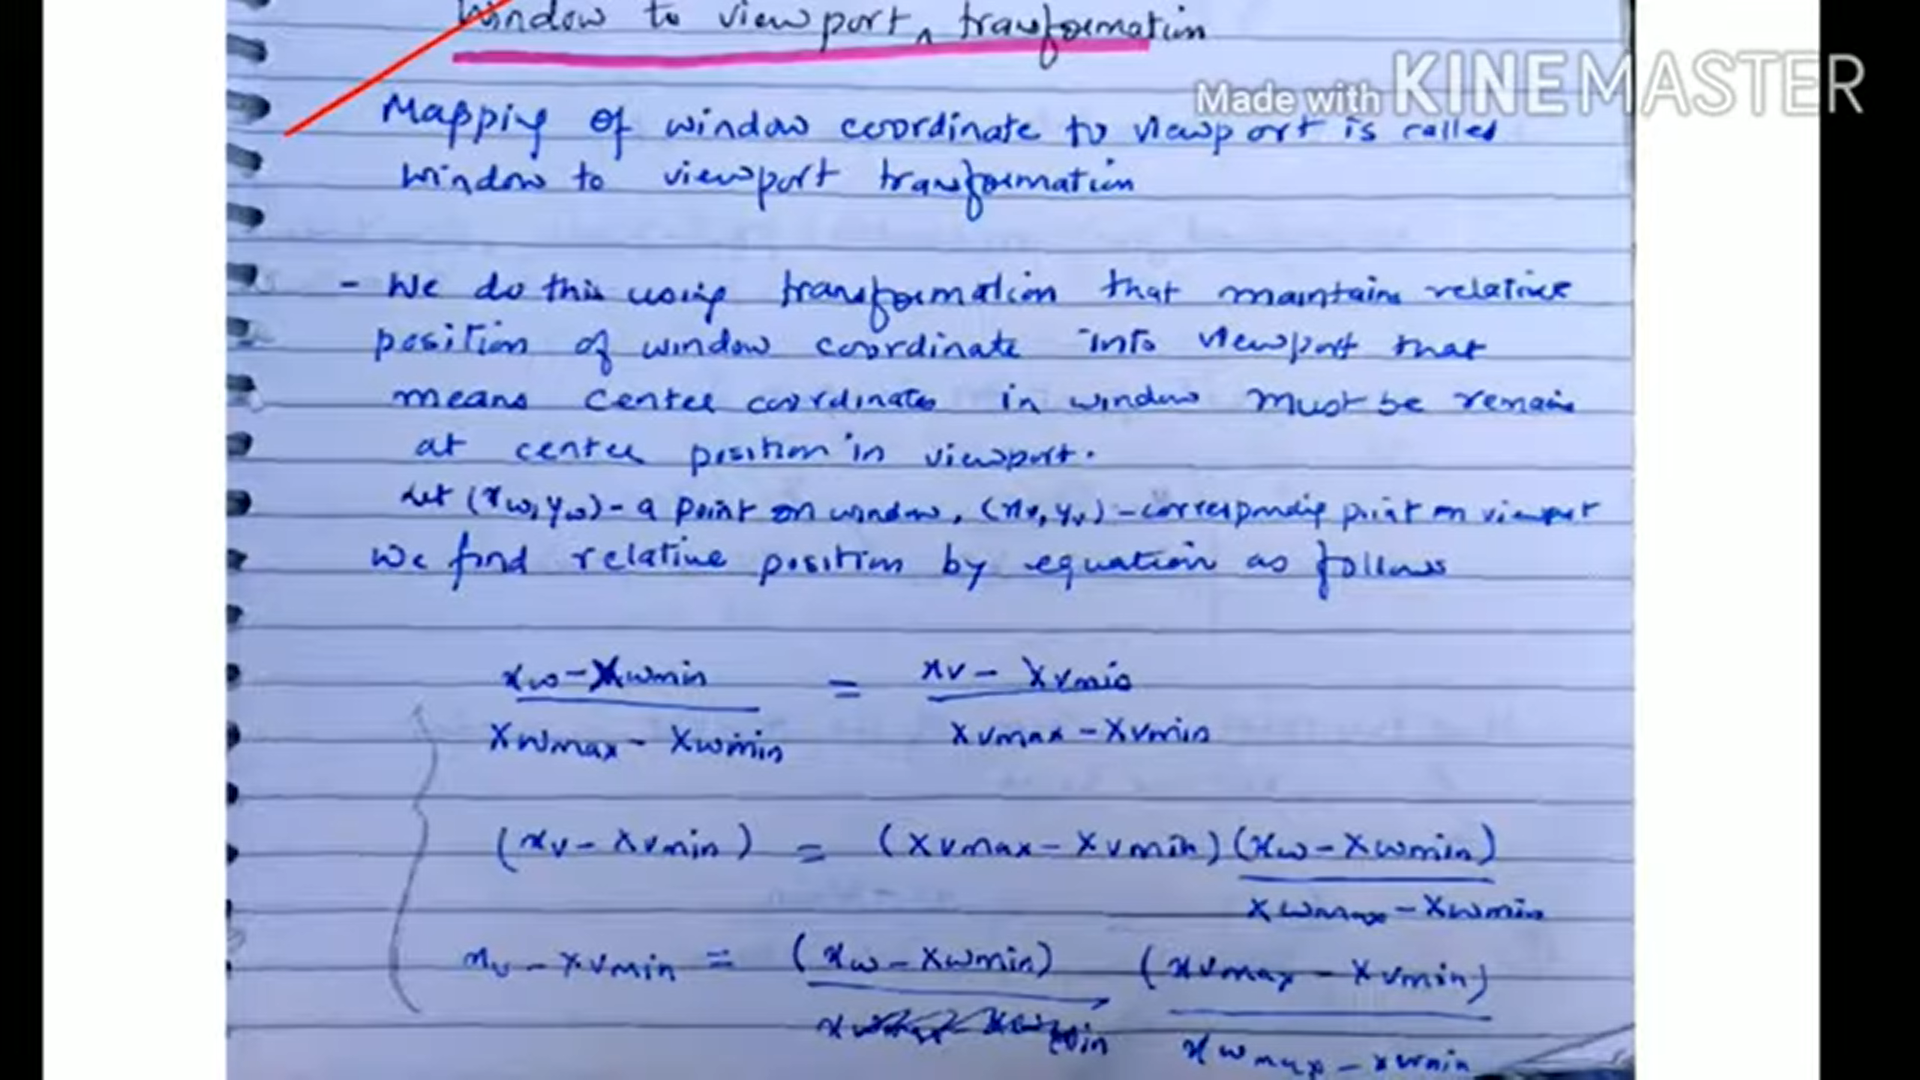 Window to viewport transformation
Made with KINEMASTER
Mapping of window coordinate to viewport is called
window to viewport transformation
- We do this using transformation that maintains relative
position of window coordinate into viewport that
means center coordinates in window must be remain
at center position in viewport.
Let (xw, yw) - a point on window, (xv, yv) - corresponding point on viewport
We find relative position by equation as follows
xw - Xwmin = xv - Xvmin
Xwmax - Xwmin Xvmax - Xvmin
(xv - Xvmin) = (Xvmax - Xvmin) (xw - Xwmin)
Xwmax - Xwmin
xv - Xvmin = (xw - Xwmin) (xvmax - Xvmin)
xwmax - xwmin